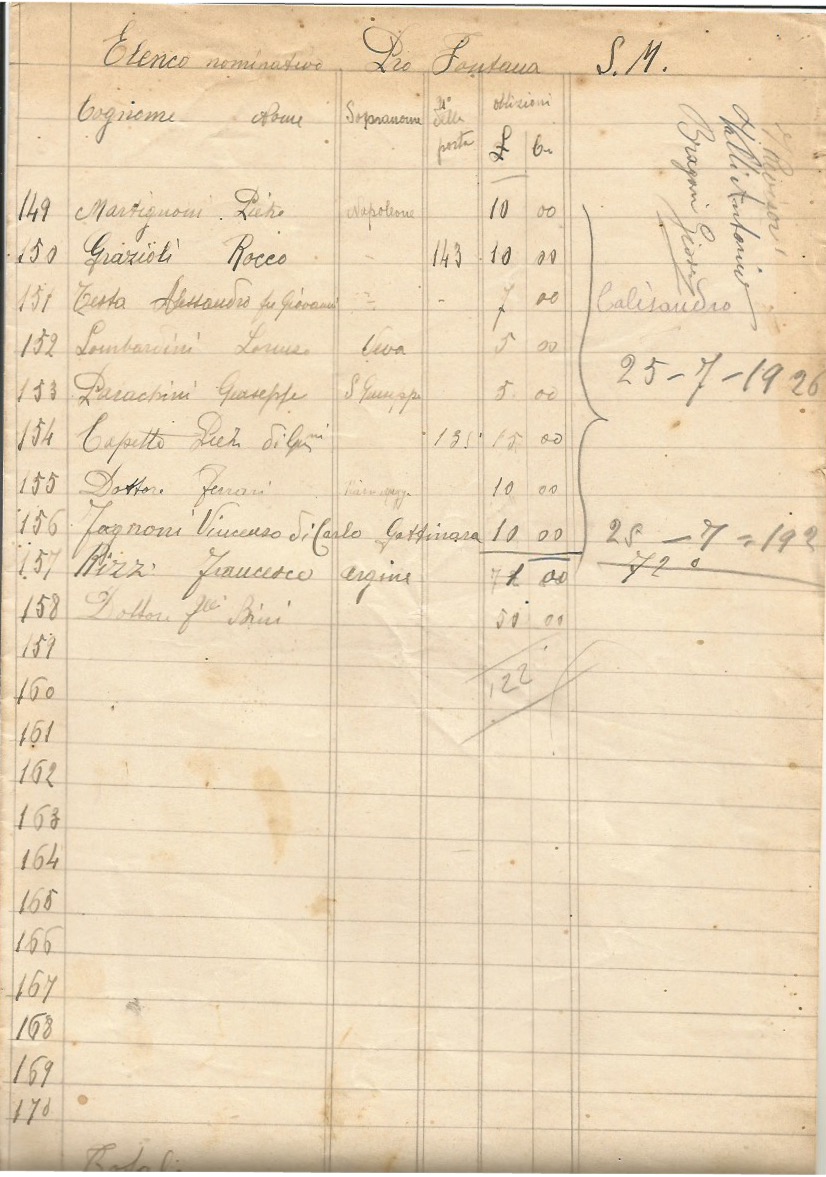 Elenco nominativo Pro Fontana S. M.
Cognome Nome Sopranome N° della porta oblizioni
£ C.
149 Martignoni Pietro Napoleone 10 00
150 Grazioli Rocco - 143 10 00
151 Testa Alessandro fu Giovanni - - 7 00
152 Lombardini Lorenzo 5 00
153 Parachini Giuseppe S Giuseppe 5 00
154 Capetto di 15 00
155 Dottore Ferrari 10 00
156 Vincenso di Carlo Gattinara 10 00
157 Rizzi Francesco argine 72 00
158 Dottore 50 00
159
122
160
161
162
163
164
165
166
167
168
169
170
Antonio
Calisandro
25-7-1926
25-7-192
72